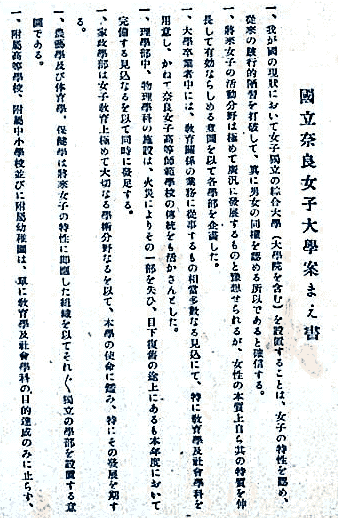 國立奈良女子大學案まえ書
一、我が國の現狀において女子獨立の綜合大學(大學院を含む)を設置することは、女子の特性を認め、
從來の跛行的陋習を打破して、眞に男女の同權を認める所以であると確信する。
一、將來女子の活動分野は極めて廣汎に發展するものと豫想せられるが、女性の本質上自ら其の特質を伸
長して有効ならしめる意圖を以て各學部を企畫した。
一、大學卒業者中には、教育關係の業務に從事するもの相當多數なる見込にて、特に教育學及社會學科を
用意し、かねて奈良女子高等師範學校の傳統をも活かさんとした。
一、理學部中、物理學科の施設は、火災によりその一部を失ひ、目下復舊の途上にあるも本年度において
完備する見込なるを以て同時に發足する。
一、家政學部は女子教育上極めて大切なる學術分野なるを以て、本學の使命に鑑み、特にその發展を期す
る。
一、農藝學及び体育學、保健學は將來女子の特性に卽應した組織を以てそれ〲獨立の學部を設置する意
圖である。
一、附屬高等學校、附屬中小學校並びに附屬幼稚園は、單に教育學及社會學科の目的達成のみに止らず、